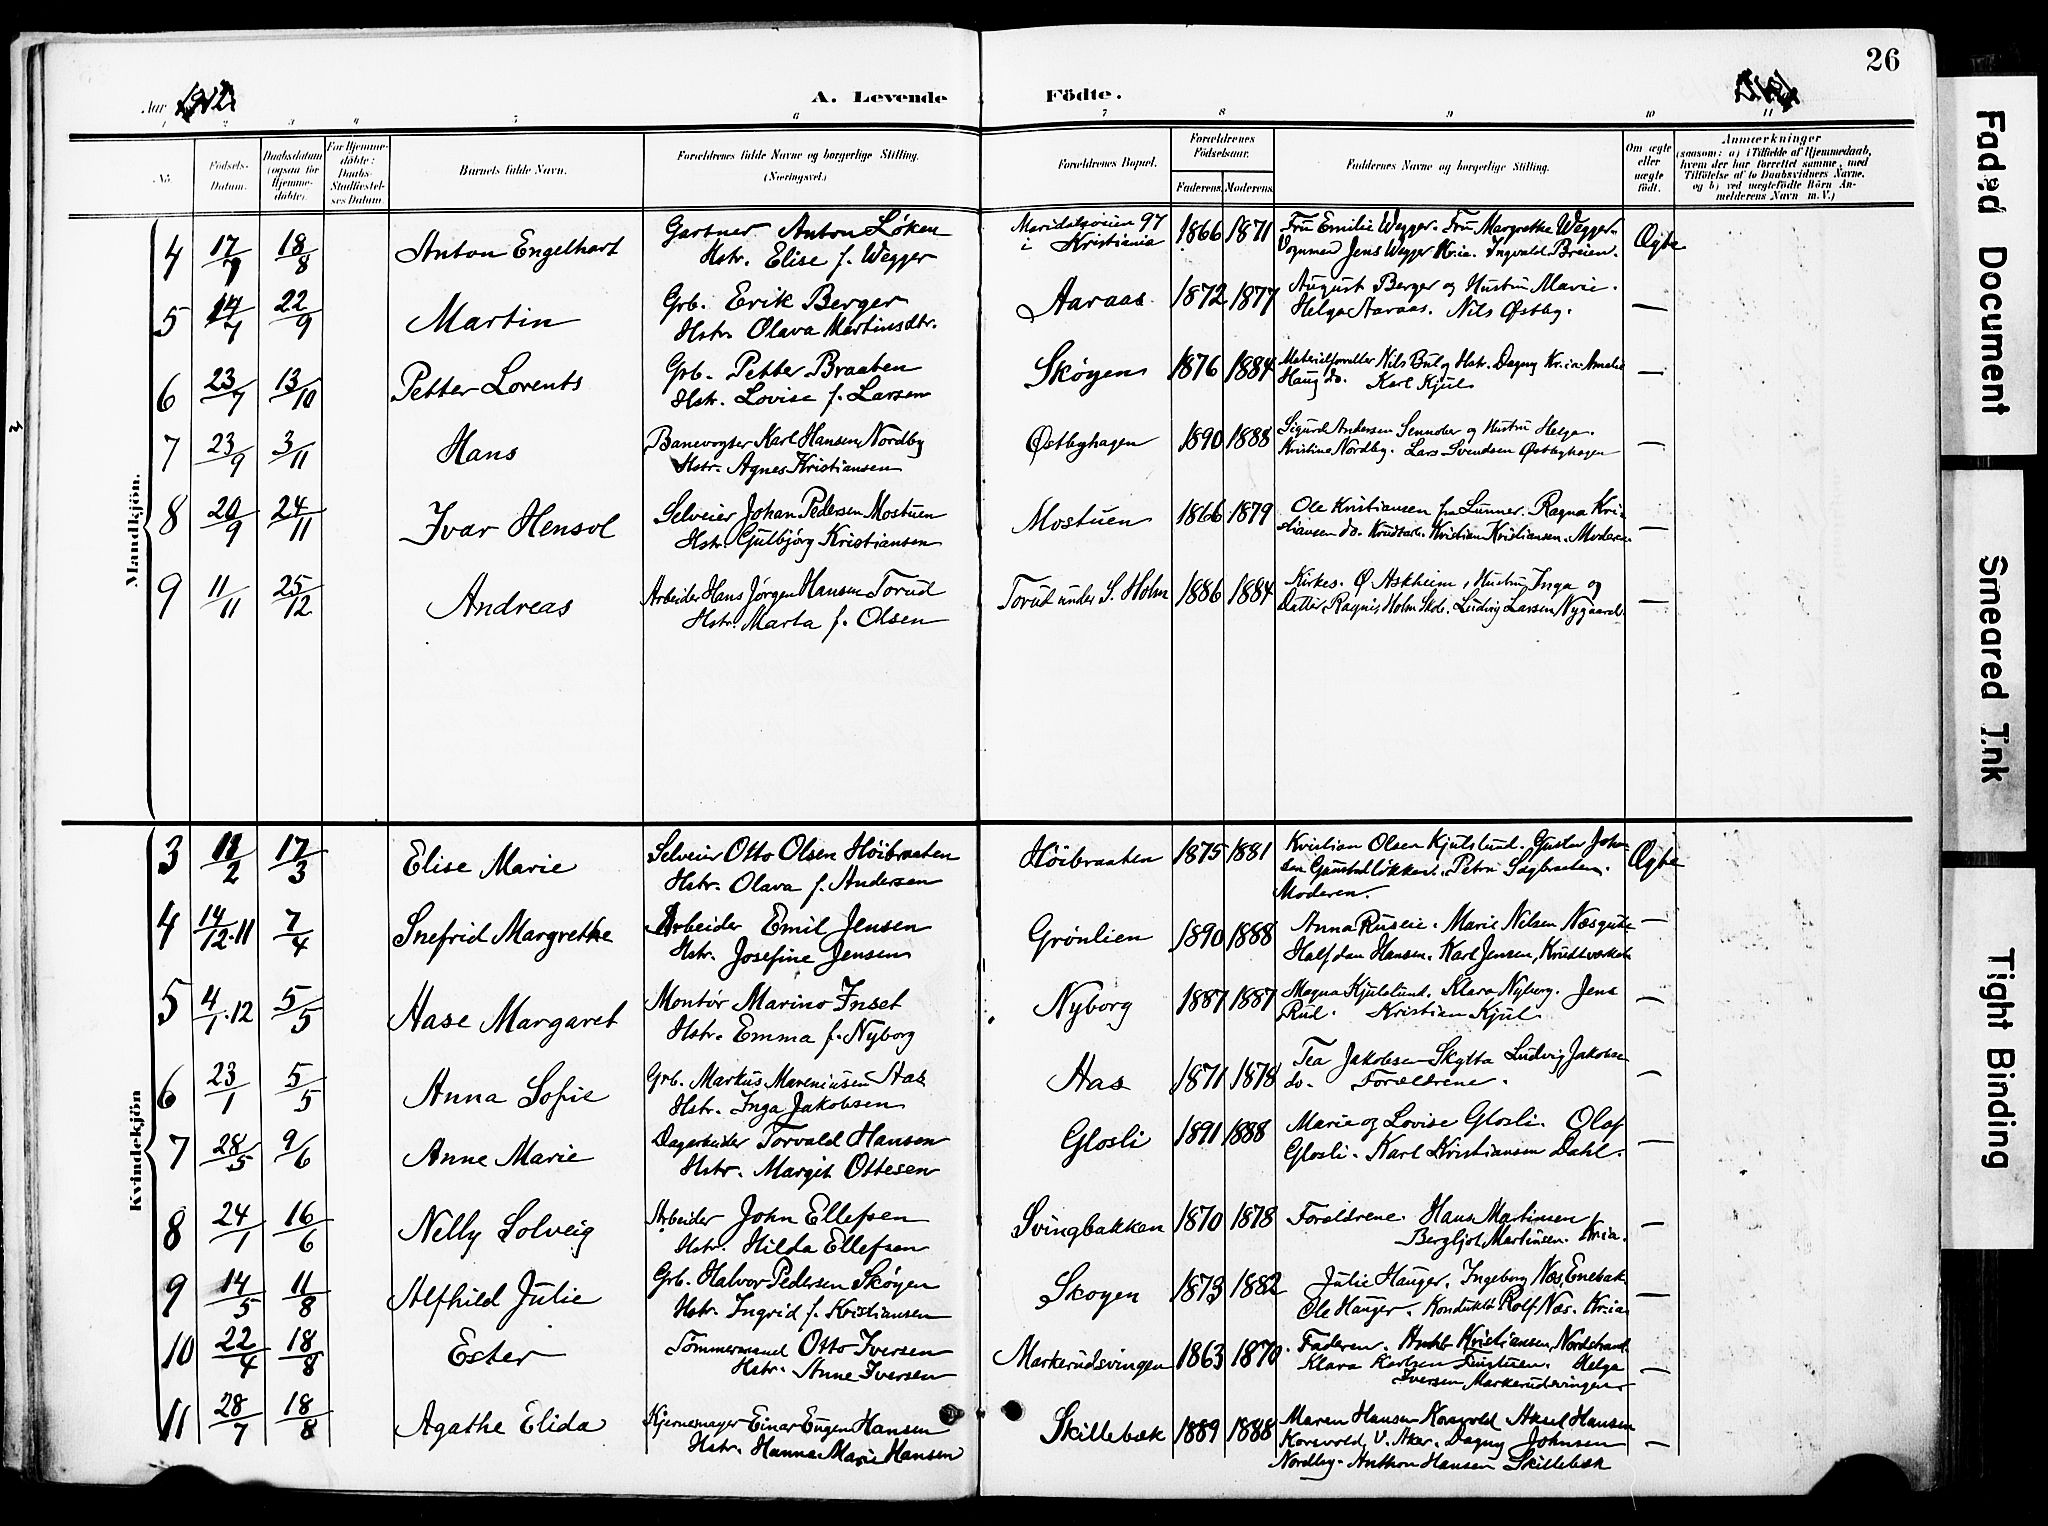 26
Aar 1912.
A. Levende Födte.
1 2 3 4 5 6 7 8 9 10 11
No. Födsels-Datum. Daabsdatum (ogsaa for Hjemme-döbte). For Hjemme-döbte: Daabs-Stadfæstel-ses Datum. Barnets fulde Navn. Forældrenes fulde Navne og borgerlige Stilling. (Næringsvei.) Forældrenes Bopæl. Forældrenes Födselsaar. Faderens. Moderens. Faddernes Navne og borgerlige Stilling. Om ægte eller uægte födt. Anmærkninger
(saasom: a) i Tilfælde af Hjemmedaab,
hvem der har forrettet samme, med
Tilföielse af to Daabsvidners Navne,
og b) ved uægtefödte Börn An-
melderens Navn m. V.)
Mandkjön.
4 17/7 18/8 Anton Engelhart Gartner Anton Løken Maridalsveien 97 1866 1871 Fru Emilie Wegger. Fru Margrethe Wegger. Ægte
Hstr. Elise f. Wegger i Kristiania Vognmed Jens Wegger Kr.ia. Ingvald Breien.
5 14/7 22/9 Martin Grb. Erik Berger Aaraas 1872 1877 August Berger og Hustru Marie. —
Hstr. Olava Martinsdtr. Helga Aaraas. Nils Østby.
6 23/7 13/10 Petter Lorents Grb. Petter Braaten Skøyen 1876 1884 Materialforvalter Nils Bul og Hstr. Dagny Kr.ia. Amalie —
Hstr. Lovise f. Larsen Haug do. Karl Kjul
7 23/9 3/11 Hans Banevogter Karl Hansen Nordby Østbyhagen 1890 1888 Sigurd Andersen Sennober og Hustru Helga. —
Hstr. Agnes Kristiansen Kristine Nordby. Lars Svendsen Østbyhagen
8 20/9 24/11 Ivar Hensol Selveier Johan Pedersen Mostuen Mostuen 1866 1879 Ole Kristiansen fra Lunner. Ragna Kri- —
Hstr. Gulbjørg Kristiansen stiansen do. Krudtarb. Kristian Kristiansen. Moderen.
9 11/11 25/12 Andreas Arbeider Hans Jørgen Hansen Torud Torud under S. Holm 1886 1884 Kirkes. Ø. Askheim, Hustru Inga og —
Hstr. Marta f. Olsen Datter Ragni, Holm Skole. Ludvig Larsen Nygaard.
Kvindekjön
3 11/2 17/3 Elise Marie Selveier Otto Olsen Høibraaten Høibraaten 1875 1881 Kristian Olsen Kjulslund. Gustav Johan- Ægte
Hstr. Olava f. Andersen sen Gaustadløkken. Petra Sagbraaten.
Moderen.
4 14/12.11 7/4 Snefrid Margrethe Arbeider Emil Jensen Grønlien 1890 1888 Anna Ruseie. Marie Nilsen Næsgute —
Hstr. Josefine Jensen Halfdan Hansen. Karl Jensen, Krudtværket
5 4/1.12 5/5 Aase Margaret Montør Marino Inset Nyborg 1887 1887 Magna Kjulslund. Klara Nyborg. Jens —
Hstr. Emma f. Nyborg Rud. Kristian Kjul.
6 23/1 5/5 Anna Sofie Grb. Markus Mareniusen Aas Aas 1871 1878 Tea Jakobsen Skytta Ludvig Jakobsen —
Hstr. Inga Jakobsen do. Forældrene.
7 28/5 9/6 Anne Marie Dagarbeider Torvald Hansen Glosli 1891 1888 Marie og Lovise Glosli. Olaf —
Hstr. Margit Ottesen Glosli. Karl Kristiansen Dahl.
8 24/1 16/6 Nelly Solveig Arbeider John Ellefsen Svingbakken 1870 1878 Forældrene. Hans Martinsen, —
Hstr. Hilda Ellefsen Bergljot Martinsen. Kr.ia.
9 14/5 11/8 Alfhild Julie Grb. Halvor Pedersen Skøyen Skoyen 1873 1882 Julie Hauger, Ingeborg Næs, Enebak —
Hstr. Ingrid f. Kristiansen Ole Hauger. Konduktør Rolf Næs. Kr.ia
10 22/4 18/8 Ester Tømmermand Otto Iversen Markerudsvingen 1863 1870 Faderen. Kristiansen, Nordstrand. —
Hstr. Anne Iversen Klara Karlsen. Helga
Iversen, Markerudsvingen
11 28/7 18/8 Agathe Elida Kjernemager Einar Eugen Hansen Skillebæk 1889 1888 Maren Hansen Korsvold Aksel Hansen —
Hstr. Hanna Marie Hansen Korsvold, V. Aker. Dagny Johnsen
Nordby. Anthon Hansen Skillebæk
Faded Document
Smeared Ink
Tight Binding